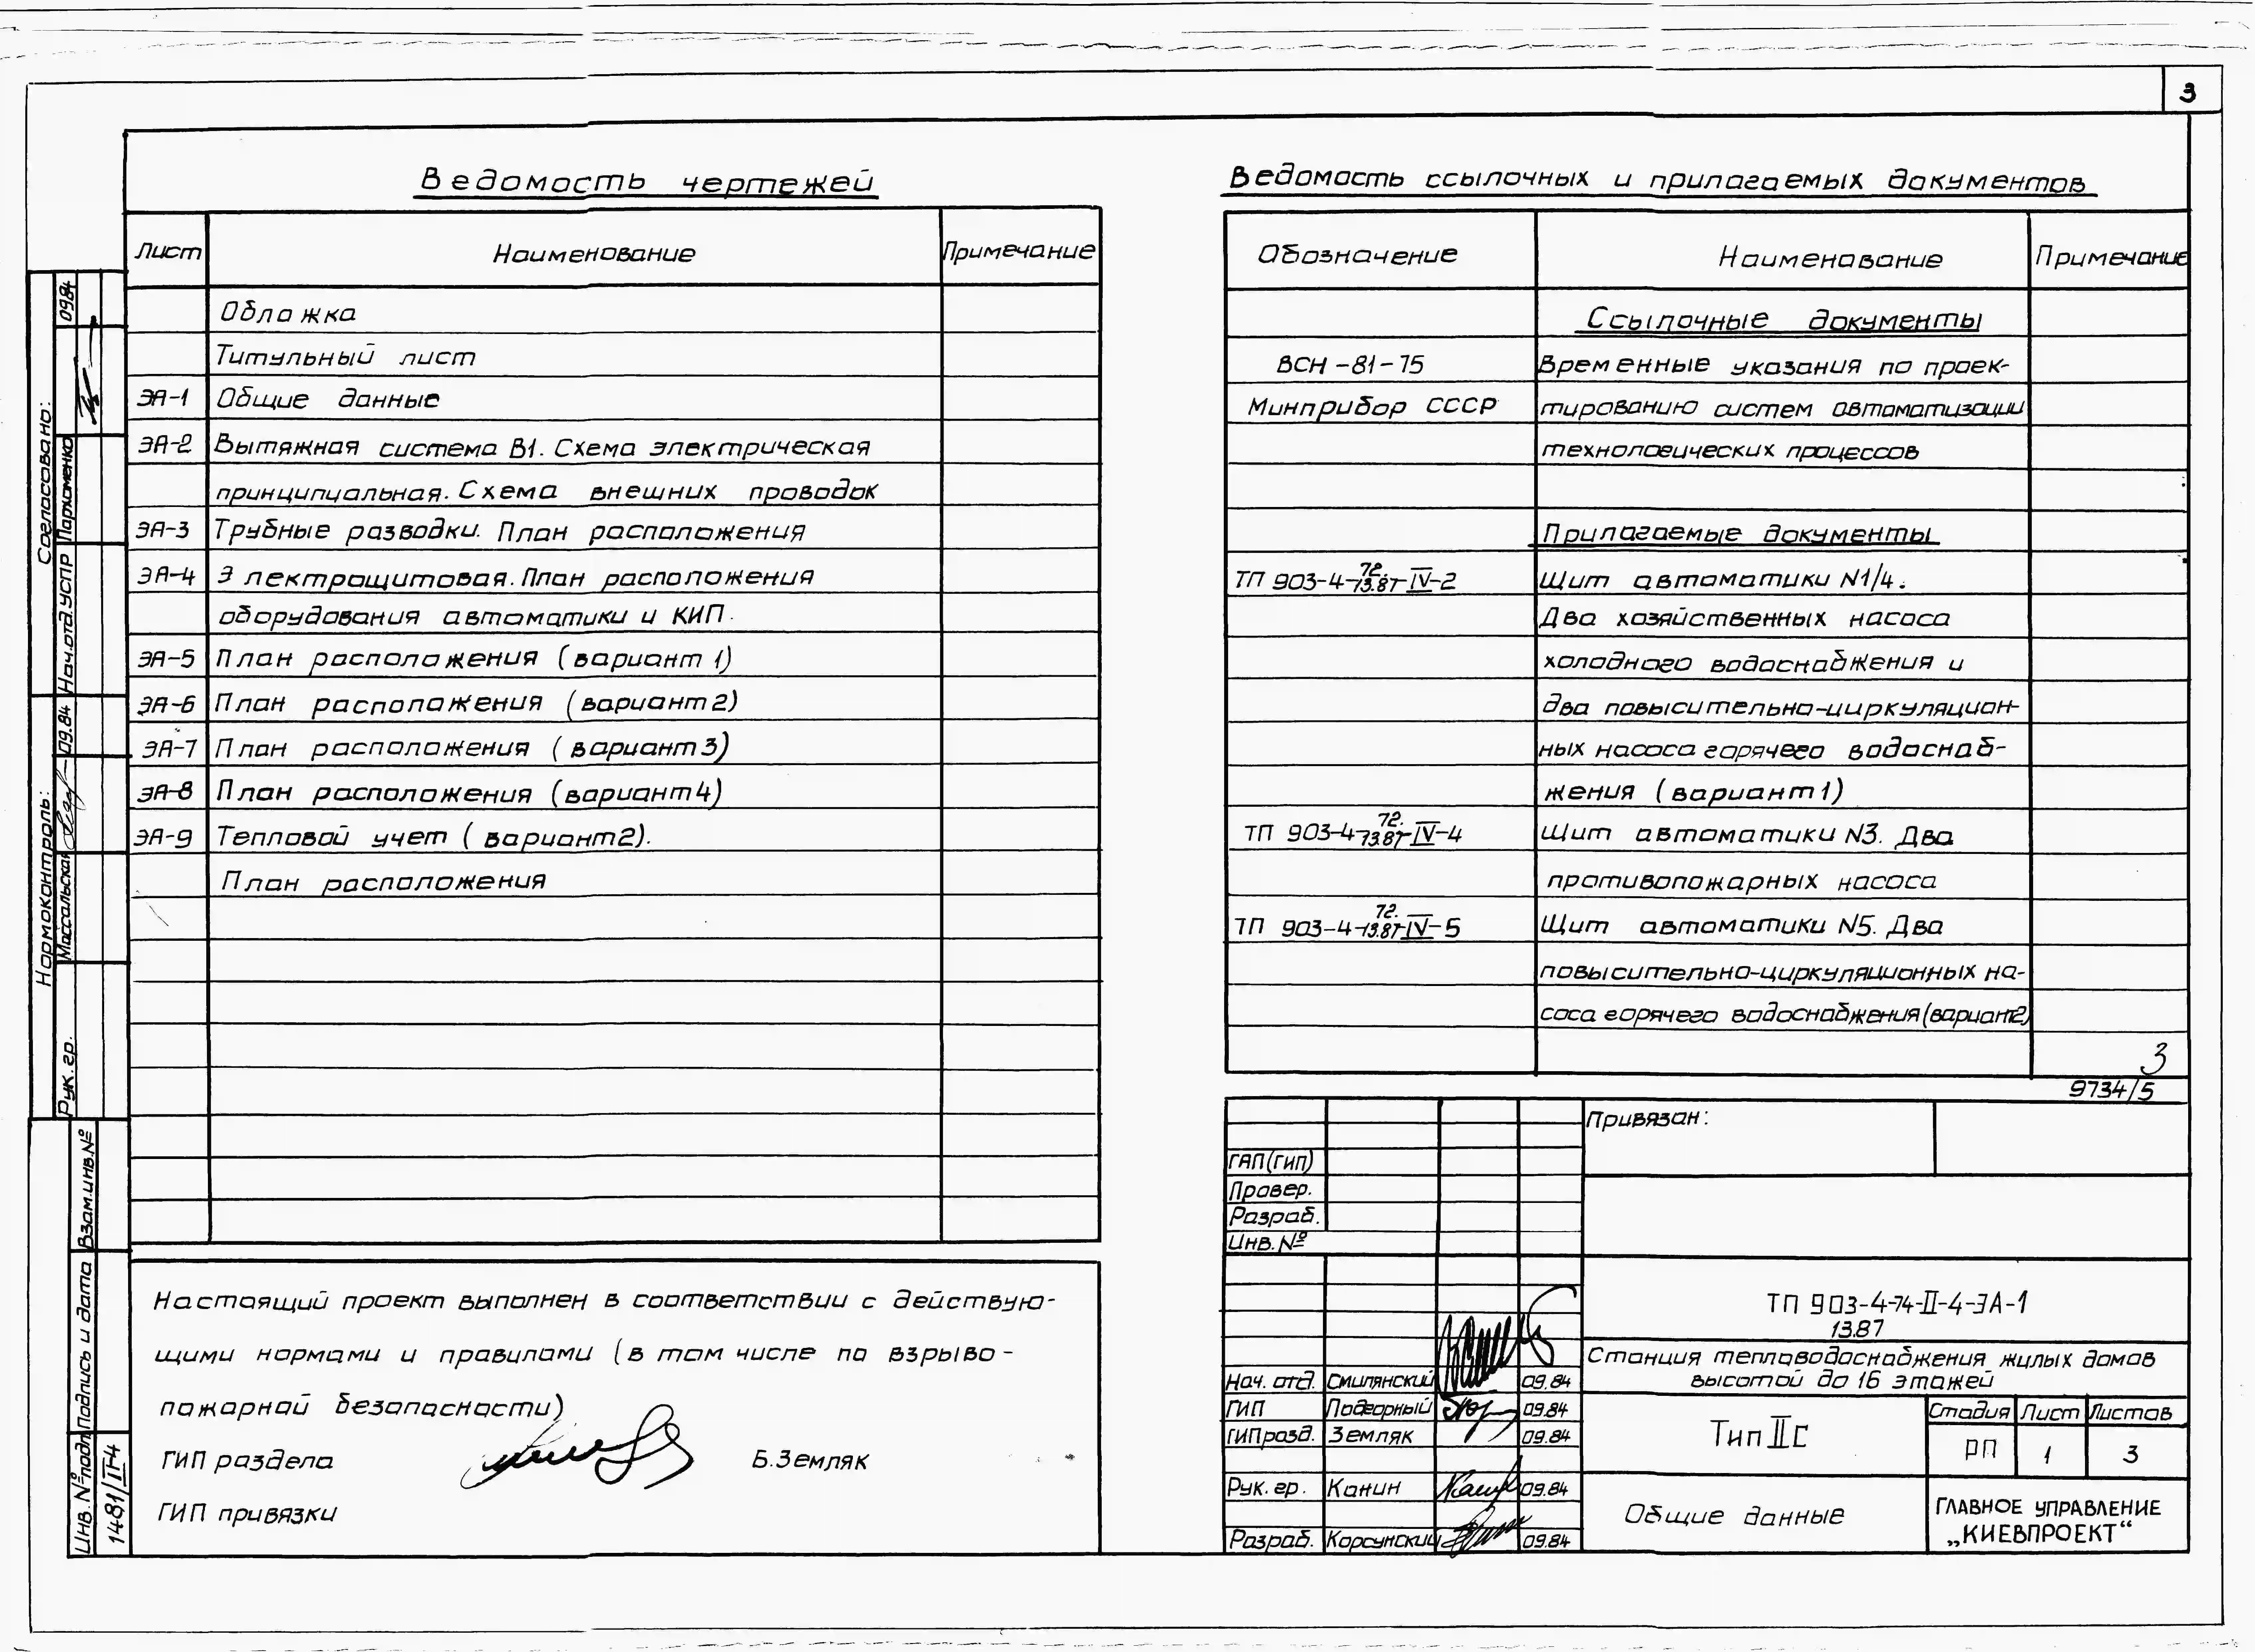 3
Ведомость чертежей
Лист Наименование Примечание
Обложка
Титульный лист
ЭА-1 Общие данные
ЭА-2 Вытяжная система В1. Схема электрическая
принципиальная. Схема внешних проводок
ЭА-3 Трубные разводки. План расположения
ЭА-4 Электрощитовая. План расположения
оборудования автоматики и КИП.
ЭА-5 План расположения (вариант 1)
ЭА-6 План расположения (вариант 2)
ЭА-7 План расположения (вариант 3)
ЭА-8 План расположения (вариант 4)
ЭА-9 Тепловой учет (вариант 2).
План расположения
Настоящий проект выполнен в соответствии с действую-
щими нормами и правилами (в том числе по взрыво-
пожарной безопасности)
ГИП раздела Б. Земляк
ГИП привязки
Ведомость ссылочных и прилагаемых документов
Обозначение Наименование Примечание
Ссылочные документы
ВСН-81-75 Временные указания по проек-
Минприбор СССР тированию систем автоматизации
технологических процессов
Прилагаемые документы
ТП 903-4-72.13.87-IV-2 Щит автоматики N1/4.
Два хозяйственных насоса
холодного водоснабжения и
два повысительно-циркуляцион-
ных насоса горячего водоснаб-
жения (вариант 1)
ТП 903-4-72.13.87-IV-4 Щит автоматики N3. Два
противопожарных насоса
ТП 903-4-72.13.87-IV-5 Щит автоматики N5. Два
повысительно-циркуляционных на-
соса горячего водоснабжения (вариант 2)
3
9734/5
Привязан:
ГАП(ГИП)
Провер.
Разраб.
Инв. №
ТП 903-4-74-II-4-ЭА-1
13.87
Станция тепловодоснабжения жилых домов
высотой до 16 этажей
Нач. отд. Смилянский 09.84
ГИП Подгорный 09.84
ГИП розд. Земляк 09.84
Рук. гр. Канин 09.84
Разраб. Корсунский 09.84
Тип IIС
Стадия Лист Листов
РП 1 3
Общие данные
ГЛАВНОЕ УПРАВЛЕНИЕ
„КИЕВПРОЕКТ“
Согласовано:
Нач. отд. УСПР Пархоменко 0984
Нормоконтроль:
Рук. гр. Массальская 09.84
Взам. инв. №
Подпись и дата
Инв. № подл.
1481/II-4